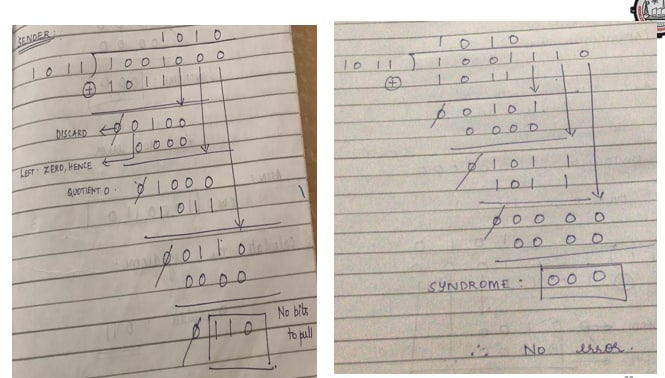 SENDER
1 0 1 0
1 0 1 1 ) 1 0 0 1 0 0 0
⊕ 1 0 1 1
DISCARD ← 0 0 1 0 0
0 0 0 0
LEFT: ZERO, HENCE
QUOTIENT 0. 0 1 0 0 0
1 0 1 1
0 0 1 1 0
0 0 0 0
0 1 1 0
No bits
to pull
1 0 1 0
1 0 1 1 ) 1 0 0 1 1 1 0
⊕ 1 0 1 1
0 0 1 0 1
0 0 0 0
0 1 0 1 1
1 0 1 1
0 0 0 0 0
0 0 0 0
SYNDROME: 0 0 0
∴ No error.